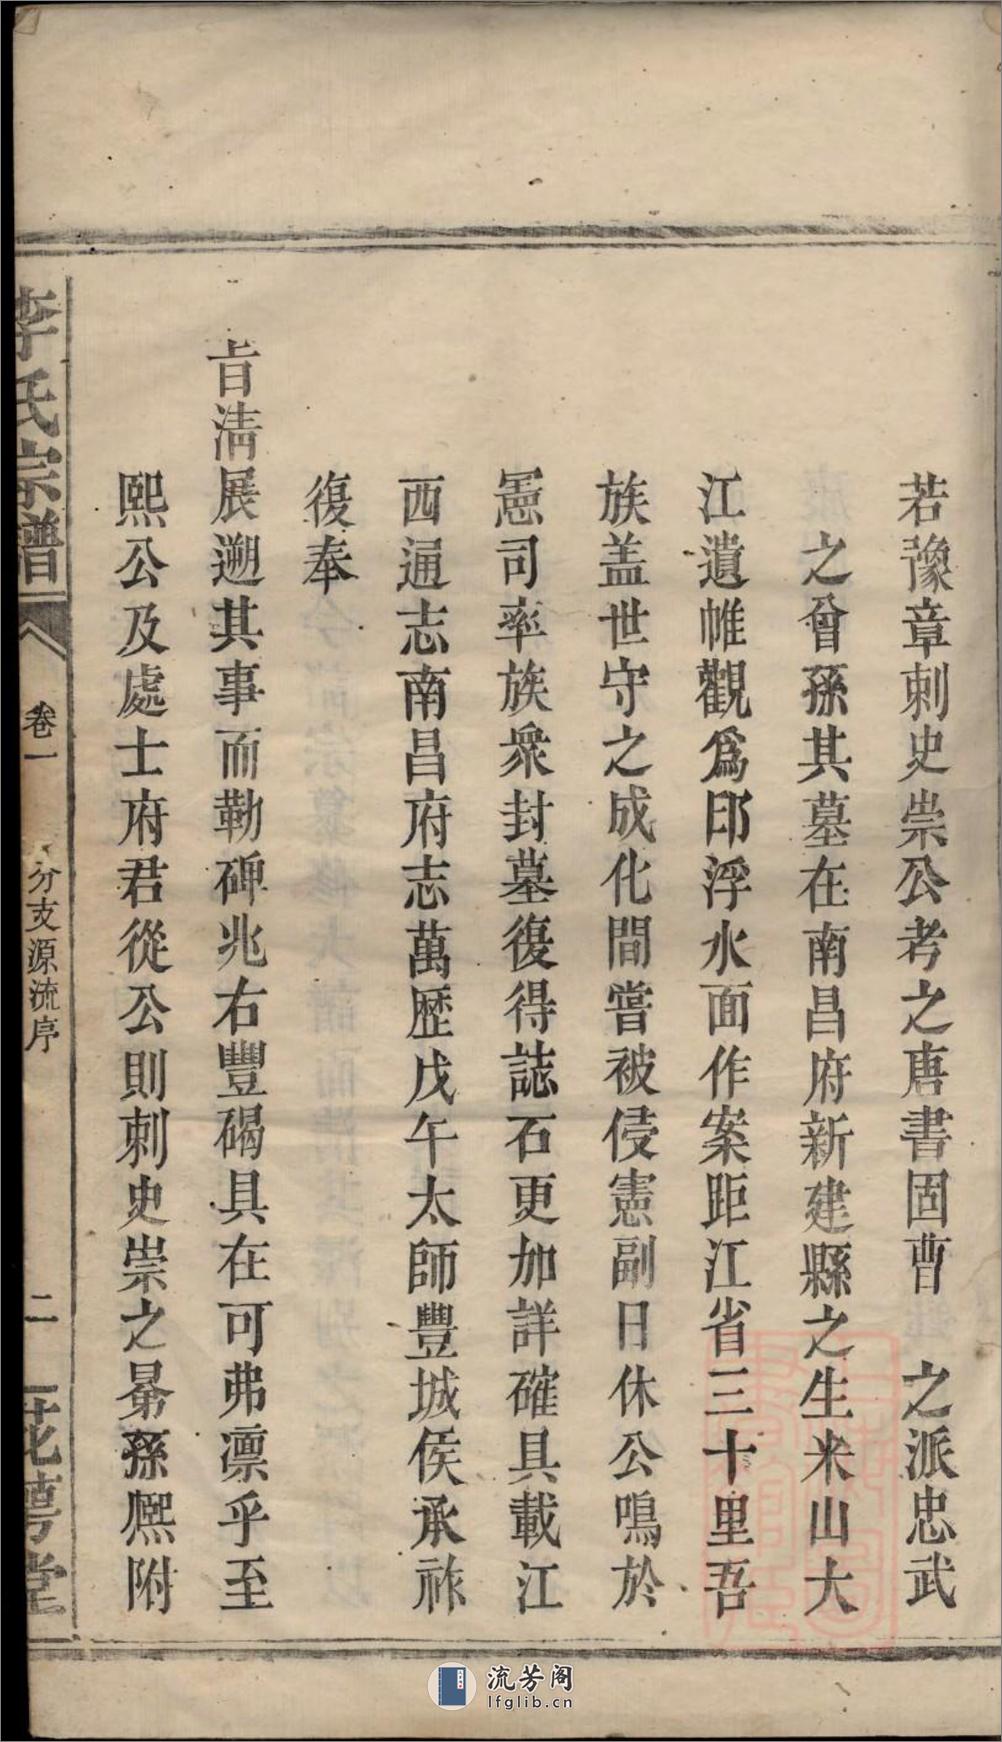 若豫章刺史崇公考之唐書固曹　之派忠武
之曾孫其墓在南昌府新建縣之生米山大
江遺帷觀爲邸浮水面作案距江省三十里吾
族盖世守之成化間嘗被侵憲副日休公鳴於
憲司率族衆封墓復得誌石更加詳確具載江
西通志南昌府志萬歷戊午太師豐城侯承祚
復奉
旨清展遡其事而勒碑兆右豐碣具在可弗凛乎至
熙公及處士府君從公則刺史崇之晜孫熈附
李氏宗譜
卷一
分支源流序
二
花萼堂
流芳阁
lfglib.cn